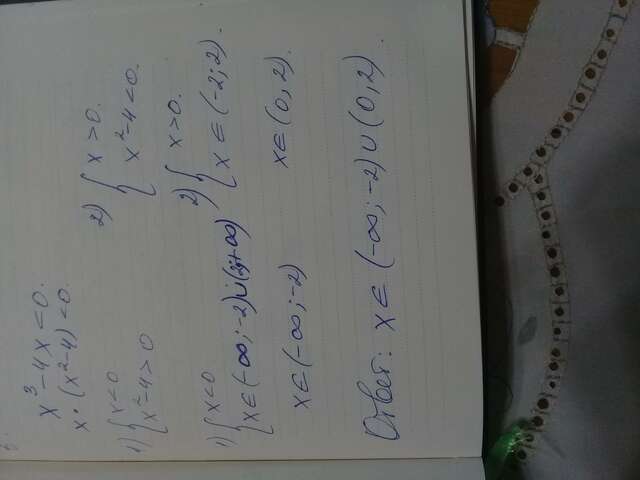 x³-4x<0.
x·(x²-4)<0.
1) { x<0
x²-4>0
2) { x>0.
x²-4<0.
1) { x<0
x∈(-∞;-2)∪(2;+∞)
2) { x>0.
x∈(-2;2).
x∈(-∞;-2)
x∈(0,2).
Ответ: x∈(-∞;-2)∪(0,2).